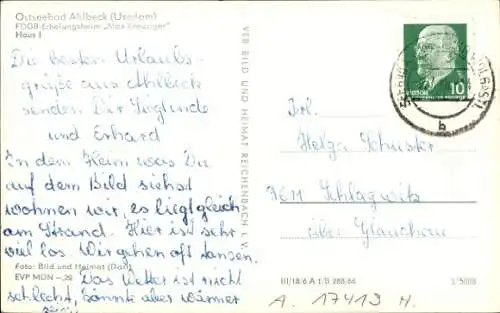 Ostseebad Ahlbeck (Usedom)
FDGB-Erholungsheim „Max Kreuziger"
Haus I
Die besten Urlaubs-
grüße aus Ahlbeck
senden Dir Sieglinde
und Erhard
In dem Heim was Du
auf dem Bild siehst
wohnen wir, es liegt gleich
am Strand. Hier ist sehr
viel los. Wir gehen oft tanzen.
Das Wetter ist nicht
schlecht, könnte aber wärmer
sein.
Foto: Bild und Heimat (Darr)
EVP MDN -,20
VEB BILD UND HEIMAT REICHENBACH i. V.
10
b
Frl.
Helga Schuster
9611 Schlagwitz
über Glauchau
III/18/6 A 1/B 288/66
A. 17413 H.